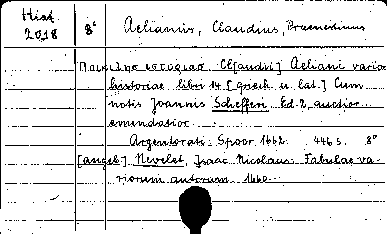 Hist.
2018
8° Aelianus, Claudius, Praenestinus
Ποικίλης ἱστορίας Cl[audii] Aeliani variae
historiae libri 14 [griech. u. lat.] Cum
notis Joannis Schefferi Ed. 2, auctior
emendatior
Argentorati: Spoor 1662. 446 S. 8°
[angeb.] Nevelet, Isaac Nicolaus: Fabulae va-
riorum autorum 1660.